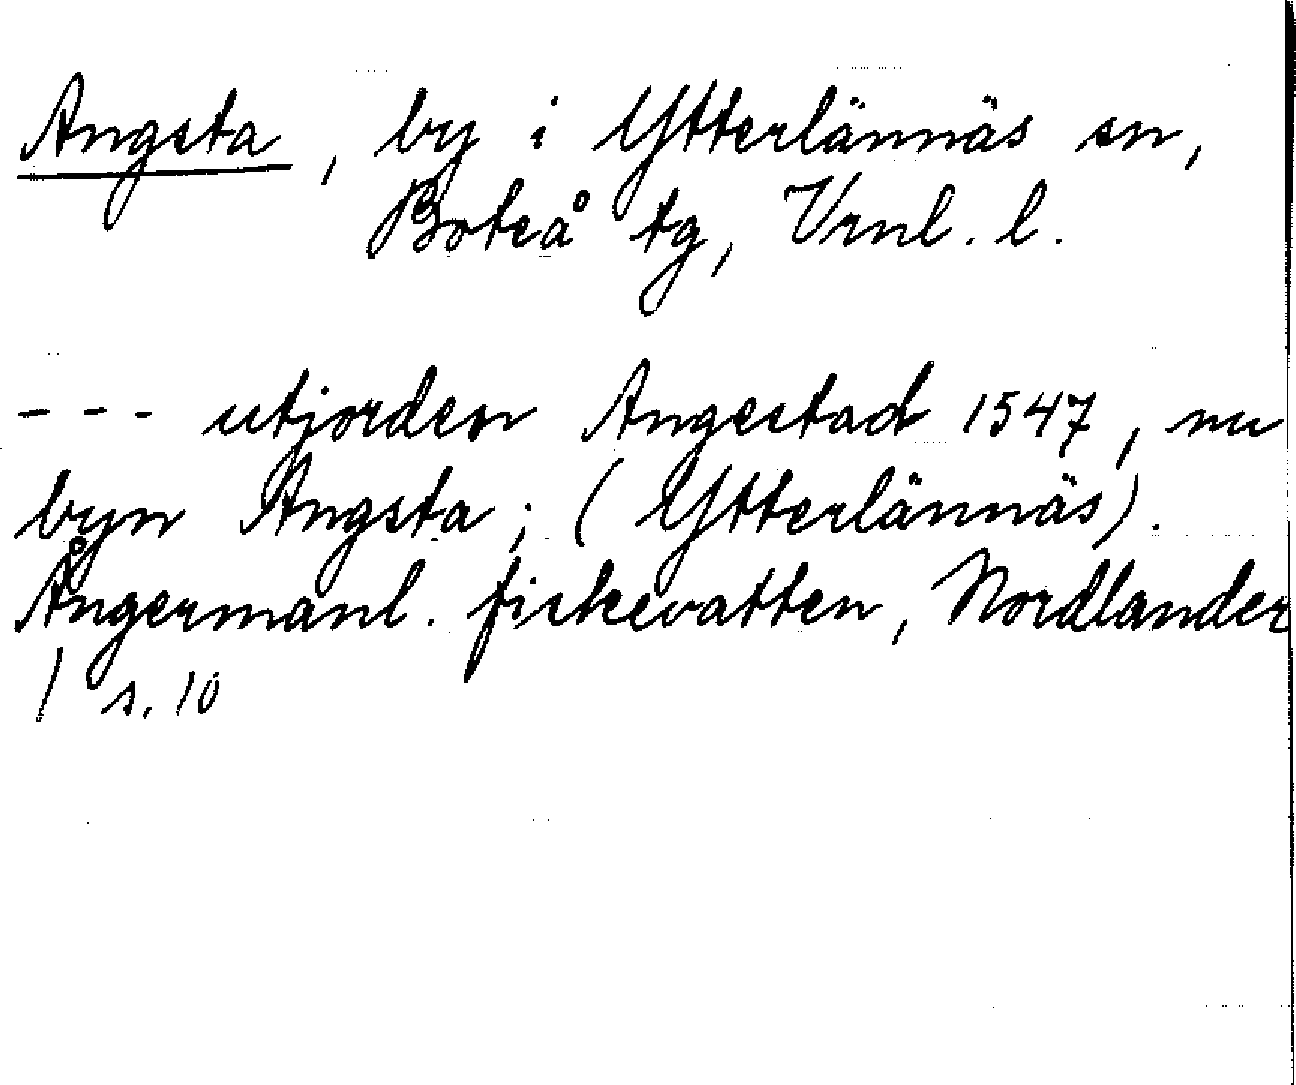 Angsta, by i Ytterlännäs sn,
Boteå tg, Vrnl. l.
- - - utjorden Angestad 1547, nu
byn Angsta; (Ytterlännäs).
Ångermanl. fiskevatten, Nordlander
/ s. 10